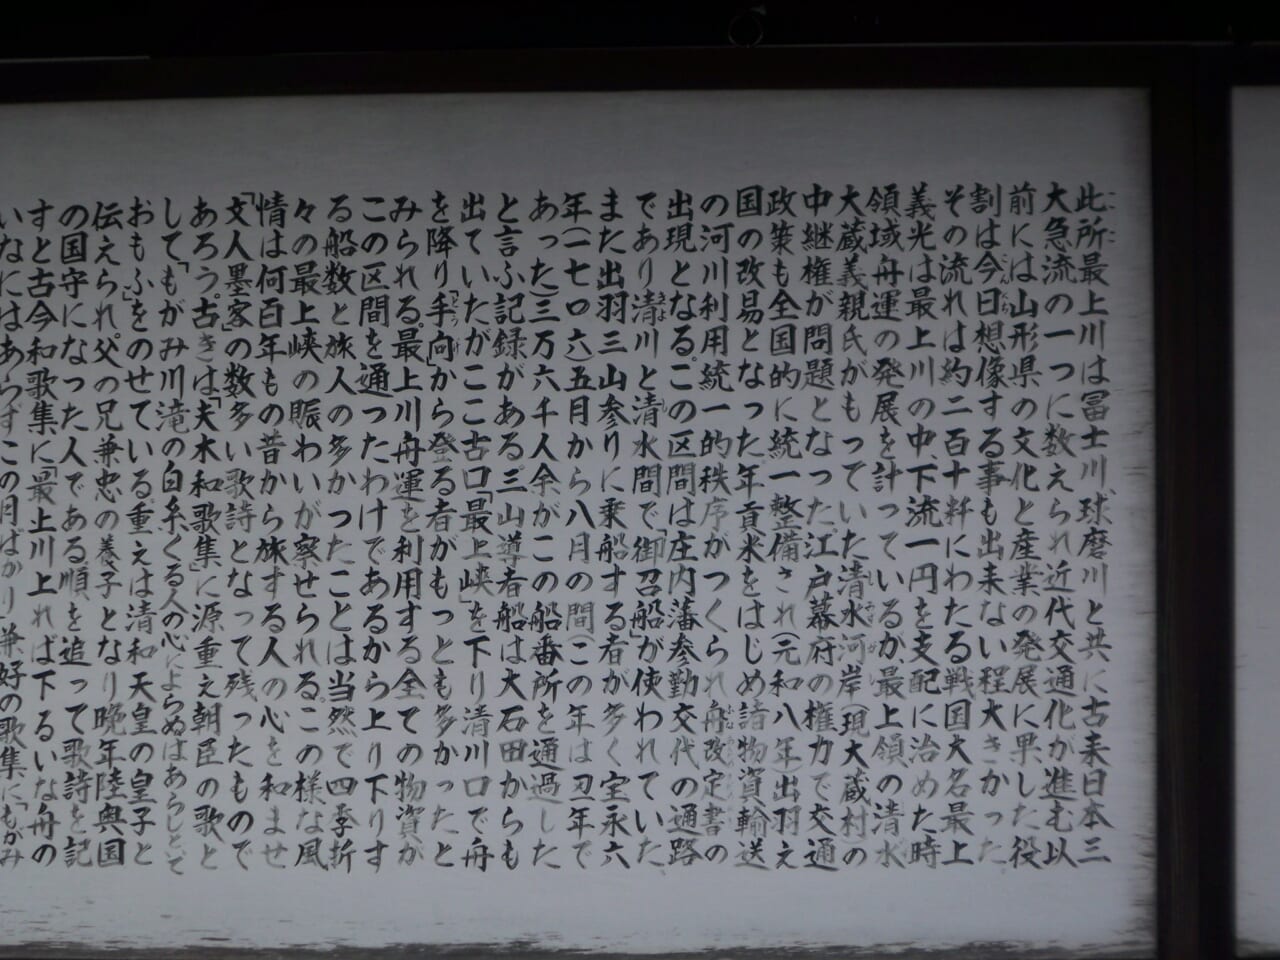 此所最上川は冨士川、球磨川と共に古来日本三
大急流の一つに数えられ近代交通化が進む以
前には山形県の文化と産業の発展に果した役
割は今日想像する事も出来ない程大きかった
その流れは約二百十粁にわたる戦国大名最上
義光は最上川の中、下流一円を支配に治めた時
領域舟運の発展を計っているが、最上領の清水
大蔵義親氏がもっていた清水河岸(現大蔵村)の
中継権が問題となった、江戸幕府の権力で交通
政策も全国的に統一整備され(元和八年出羽え
国の改易となった年貢米をはじめ諸物資輸送
の河川利用統一的秩序がつくられ舟改定書の
出現となる。この区間は庄内藩参勤交代の通路
であり清川と清水間で「御召船」が使われていた
また出羽三山参りに乗船する者が多く宝永六
年(一七〇六)五月から八月の間(この年は丑年で
あった三万六千人余がこの船番所を通過した
と言ふ記録がある。三山導者船は大石田からも
出ていたがここ古口「最上峡」を下り清川口で舟
を降り「手向」から登る者がもっとも多かったと
みられる。最上川舟運を利用する全ての物資が
この区間を通ったわけであるから上り下りす
る船数と旅人の多かったことは当然で四季折
々の最上峡の賑わいが察せられる。この様な風
情は何百年もの昔から旅する人の心を和ませ
「文人墨客」の数多い歌詩となって残ったもので
あろう。古きは「夫木和歌集」に源重え朝臣の歌と
して「もがみ川滝の白糸くる人の心によらぬはあらじとぞ
おもふ」をのせている。重えは清和天皇の皇子と
伝えられ、父の兄兼忠の養子となり晩年陸奥国
の国守になった人である順を追って歌詩を記
すと古今和歌集に「最上川上れば下るいな舟の
いなにはあらずこの月ばかり」兼好の歌集に「もがみ